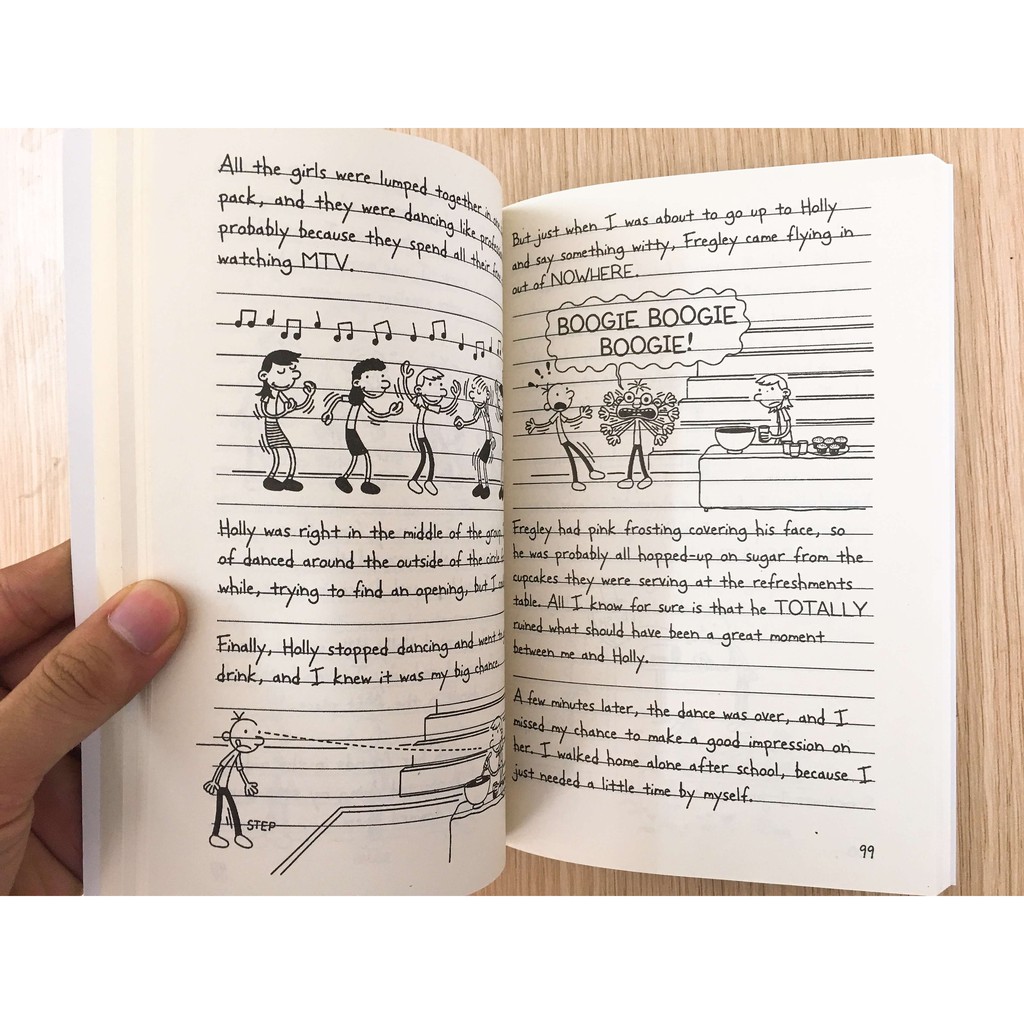 All the girls were lumped together in
pack, and they were dancing like
probably because they spend all their
watching MTV.
Holly was right in the middle of the
of danced around the outside of the circle
while, trying to find an opening, but I
Finally, Holly stopped dancing and went
drink, and I knew it was my big chance.
STEP
But just when I was about to go up to Holly
and say something witty, Fregley came flying in
out of NOWHERE.
BOOGIE BOOGIE
BOOGIE!
Fregley had pink frosting covering his face, so
he was probably all hopped-up on sugar from the
cupcakes they were serving at the refreshments
table. All I know for sure is that he TOTALLY
ruined what should have been a great moment
between me and Holly.
A few minutes later, the dance was over, and I
missed my chance to make a good impression on
her. I walked home alone after school, because I
just needed a little time by myself.
99